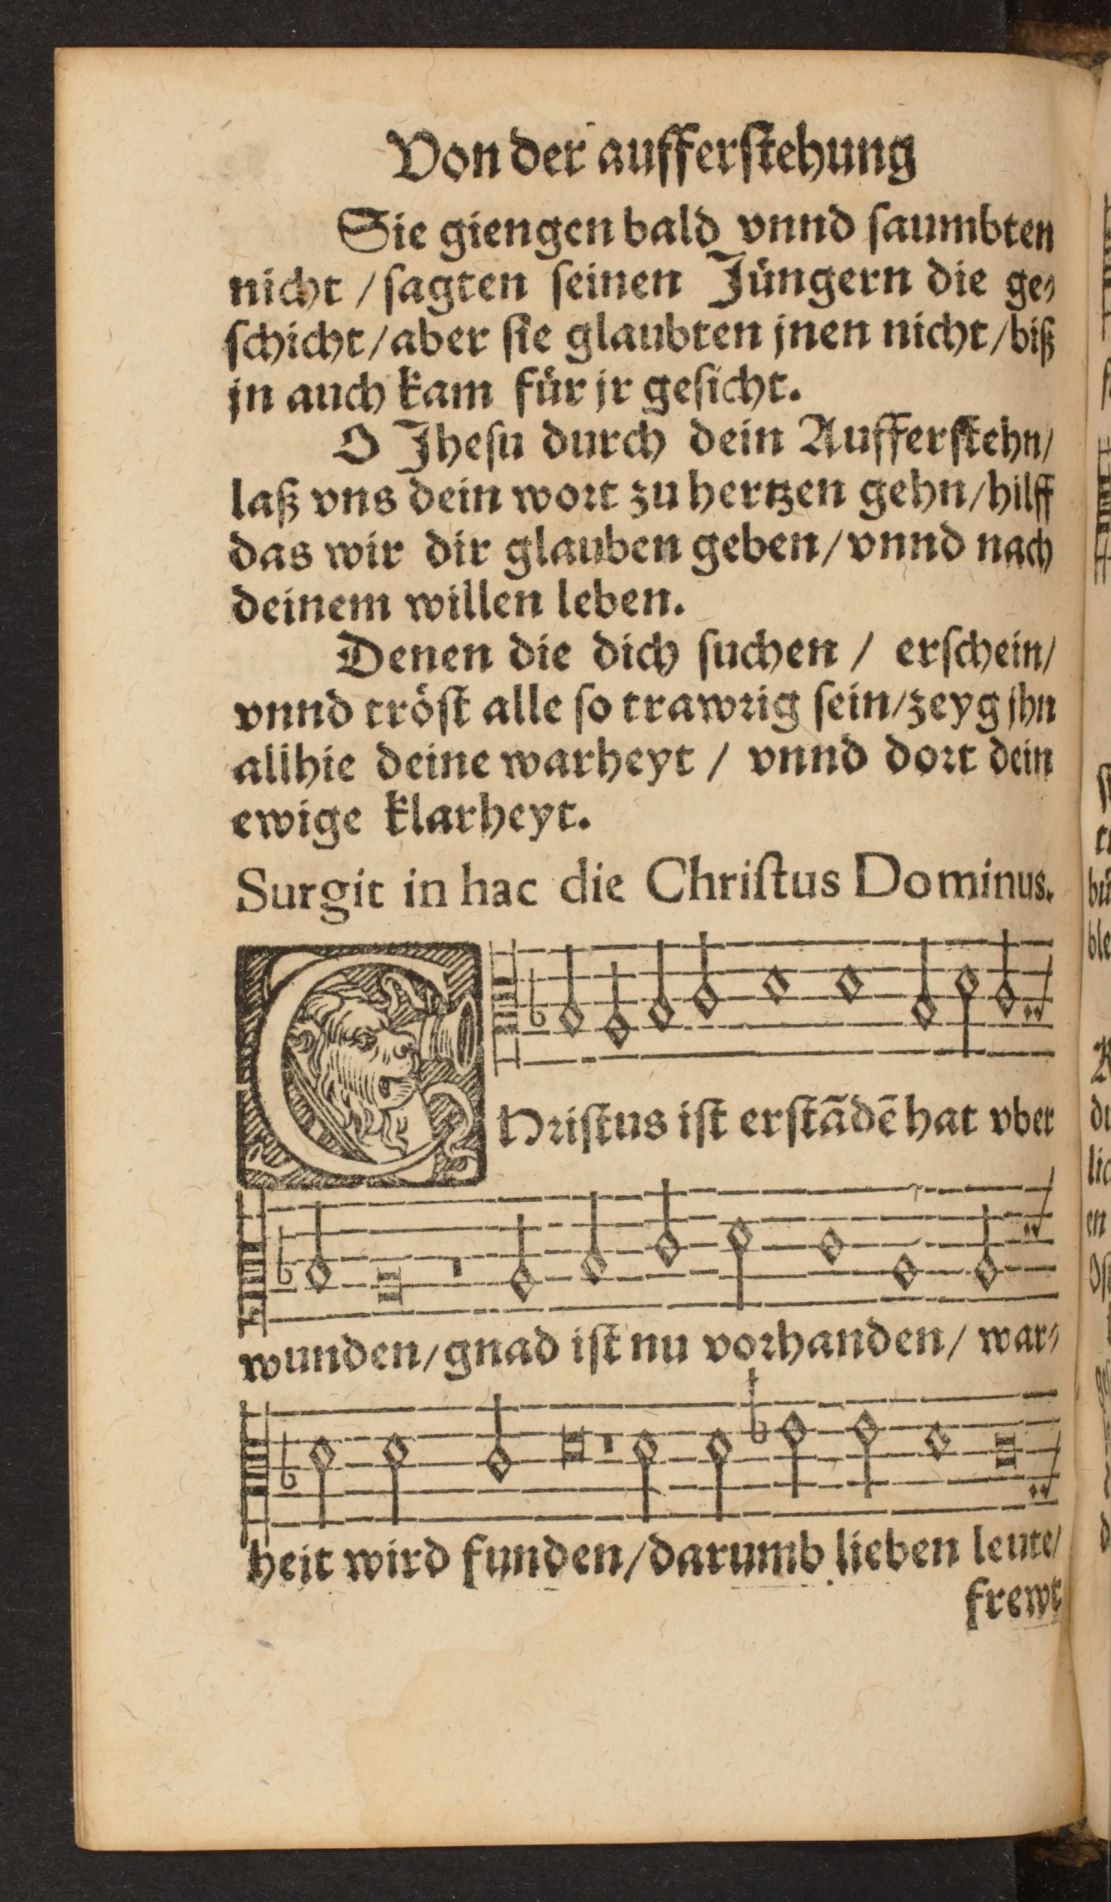 Von der aufferſtehung
Sie giengen bald vnnd ſaumbten
nicht / ſagten ſeinen Jüngern die ge⸗
ſchicht/aber ſie glaubten jnen nicht/biß
jn auch kam für jr geſicht.
O Jheſu durch dein Aufferſtehn/
laß vns dein wort zu hertzen gehn/hilff
das wir dir glauben geben/vnnd nach
deinem willen leben.
Denen die dich ſuchen / erſchein/
vnnd tröſt alle ſo trawrig ſein/zeyg jhn
allhie deine warheyt / vnnd dort dein
ewige klarheyt.
Surgit in hac die Chriſtus Dominus.
CHriſtus iſt erſtãdẽ hat vber
wunden/gnad iſt nu vorhanden/ war⸗
heit wird funden/darumb lieben leute/
frewt